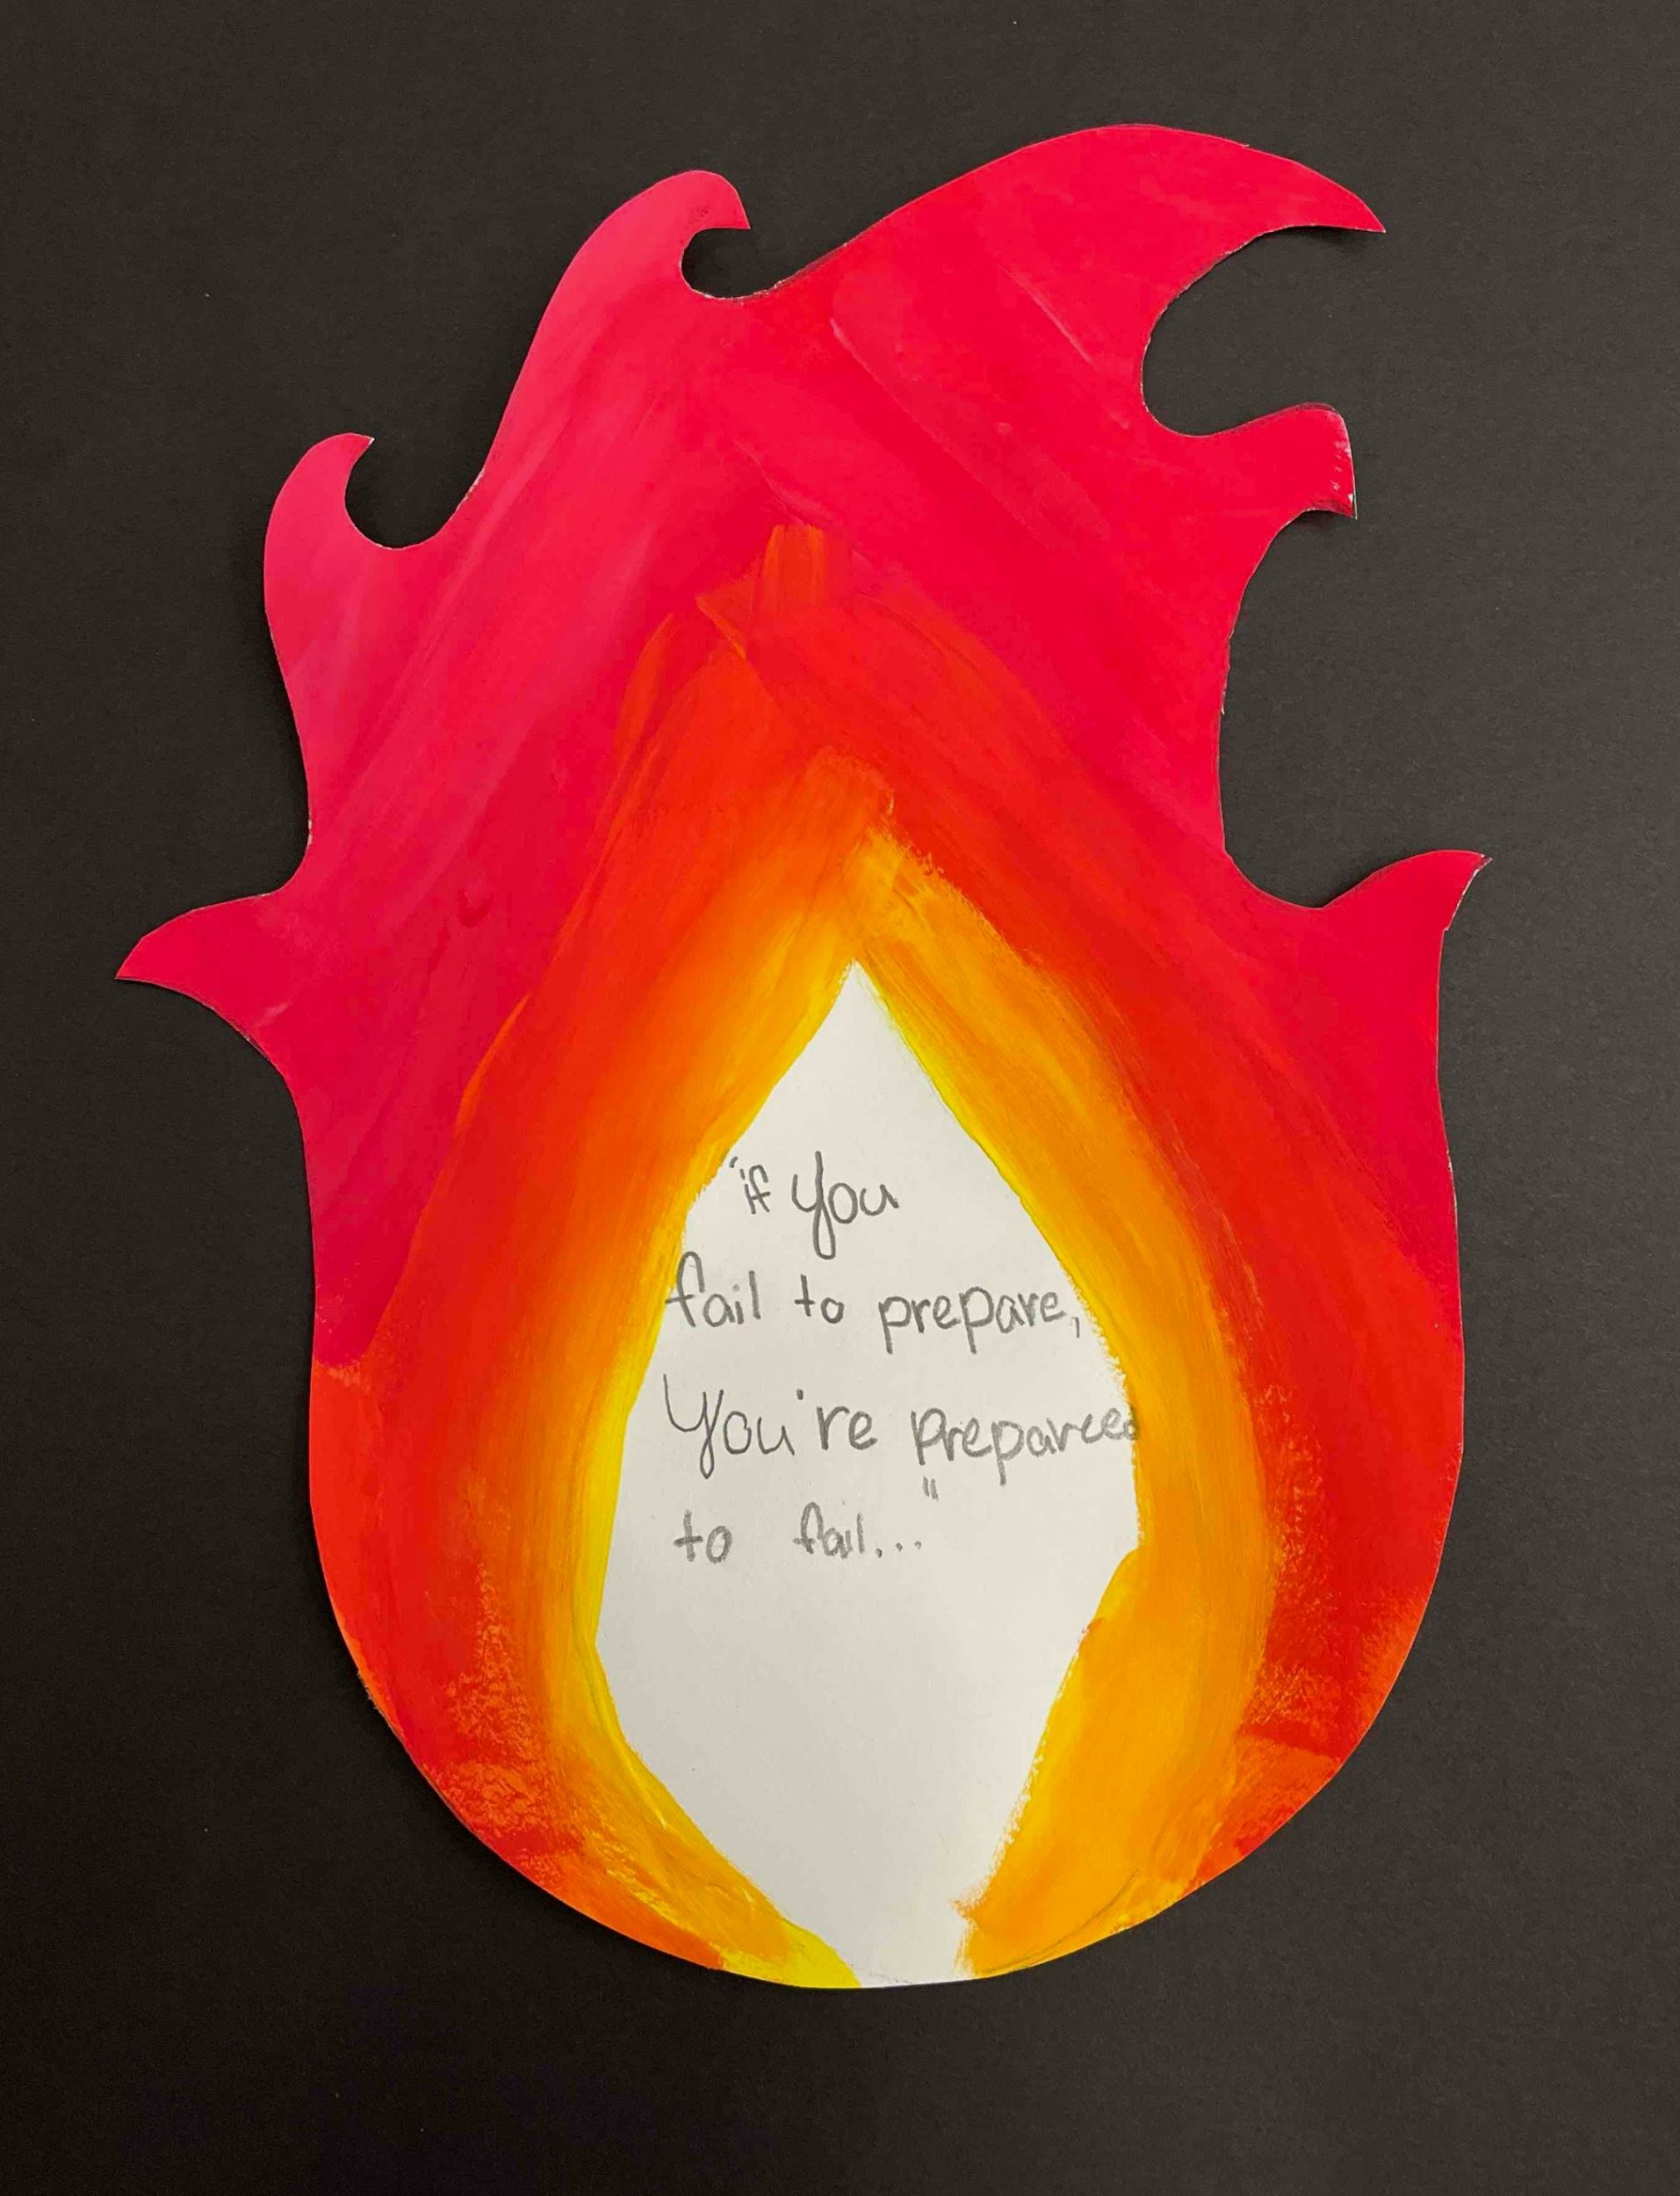 "if you
fail to prepare,
You're prepareed
to fail..."